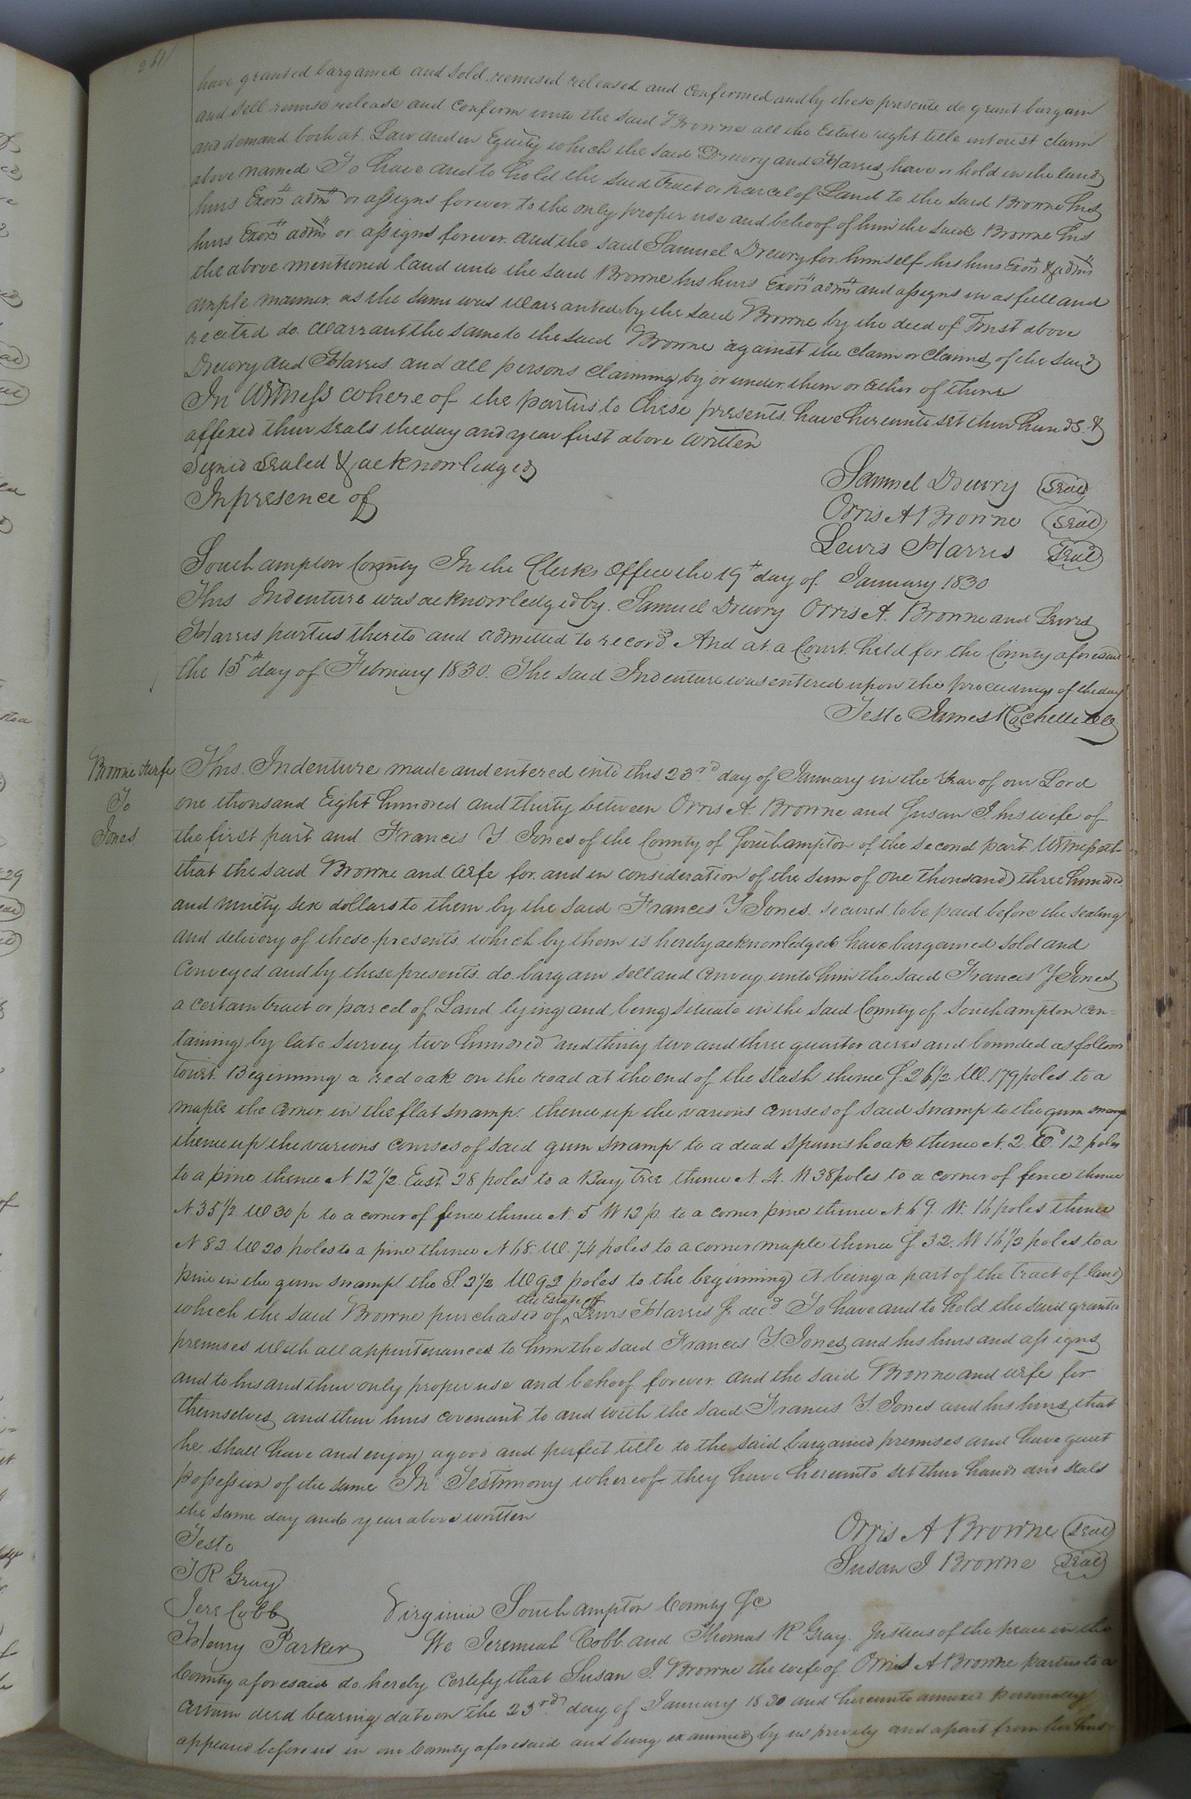 261
have granted bargained and sold remised released and confirmed and by these presents do grant bargain
and sell remise release and confirm unto the said Browne all the Estate right title interest claim
and demand both at Law and in Equity which the said Drewry and Harris have or hold in the land
above named To have and to hold the said tract or parcel of Land to the said Browne his
heirs Exors admrs or assigns forever to the only proper use and behoof of him the said Browne his
heirs Exors admrs or assigns forever. And the said Samuel Drewry for himself his heirs Exors & admrs
the above mentioned land unto the said Browne his heirs Exors admrs and assigns in as full and
ample manner as the same was warranted by the said Browne by the deed of Trust above
recited do warrant the same to the said Browne against the claim or claims of the said
Drewry and Harris and all persons claiming by or under them or either of them
In Witness whereof the parties to these presents have hereunto set their hands &
affixed their seals the day and year first above written
Signed Sealed & acknowledged
In presence of
Samuel Drewry (Seal)
Orris A Browne (Seal)
Lewis Harris (Seal)
Southampton County In the Clerks office the 19th day of January 1830
This Indenture was acknowledged by Samuel Drewry Orris A. Browne and Lewis
Harris parties thereto and admitted to record And at a Court held for the County aforesaid
the 15th day of February 1830. The said Indenture was entered upon the proceedings of the day
Teste James Rochelle
Browne & wife
To
Jones
This Indenture made and entered into this 23rd day of January in the Year of our Lord
one thousand Eight hundred and thirty between Orris A. Browne and Susan J. his wife of
the first part and Francis Y Jones of the County of Southampton of the second part Witnesseth
that the said Browne and wife for and in consideration of the sum of one thousand three hundred
and ninety six dollars to them by the said Francis Y Jones secured to be paid before the sealing
and delivery of these presents which by them is hereby acknowledged have bargained sold and
conveyed and by these presents do bargain sell and convey unto him the said Francis Y Jones
a certain tract or parcel of Land lying and being situate in the said County of Southampton con-
taining by late survey two hundred and thirty two and three quarter acres and bounded as follows
towit Beginning a red oak on the road at the end of the slash thence S. 26½ W. 179 poles to a
maple the corner in the flat swamp. thence up the various courses of said swamp to the gum swamp
thence up the various courses of said gum swamp to a dead spanish oak thence N. 2 E 12 poles
to a pine thence N 12½ East 28 poles to a Bay Tree thence N. 4. W 38 poles to a corner of fence thence
N 35½ W 30 p to a corner of fence thence N. 5 W 12 p. to a corner pine thence N. 69. W. 16 poles thence
N 82 W 20 poles to a pine thence N 68 W. 74 poles to a corner maple thence S. 32. W 16½ poles to a
pine in the gum swamp the S. 2½ W 92 poles to the beginning it being a part of the tract of land
which the said Browne purchased of the Estate of Lewis Harris Jr decd To have and to hold the said granted
premises with all appurtenances to him the said Francis Y. Jones and his heirs and assigns
and to his and their only proper use and behoof forever. And the said Browne and wife for
themselves and their heirs covenant to and with the said Francis Y. Jones and his heirs that
he shall have and enjoy a good and perfect title to the said bargained premises and have quiet
possession of the same In Testimony whereof they have hereunto set their hands and seals
the same day and year above written
Teste
T R Gray
Jere Cobb
Henry Parker
Orris A Browne (Seal)
Susan J Browne (Seal)
Virginia Southampton County Sc
We Jeremiah Cobb and Thomas R Gray Justices of the peace in the
County aforesaid do hereby certify that Susan J. Browne the wife of Orris A Browne parties to a
certain deed bearing date on the 23rd day of January 1830 and hereunto annexed personally
appeared before us in our County aforesaid and being examined by us privily and apart from her hus-